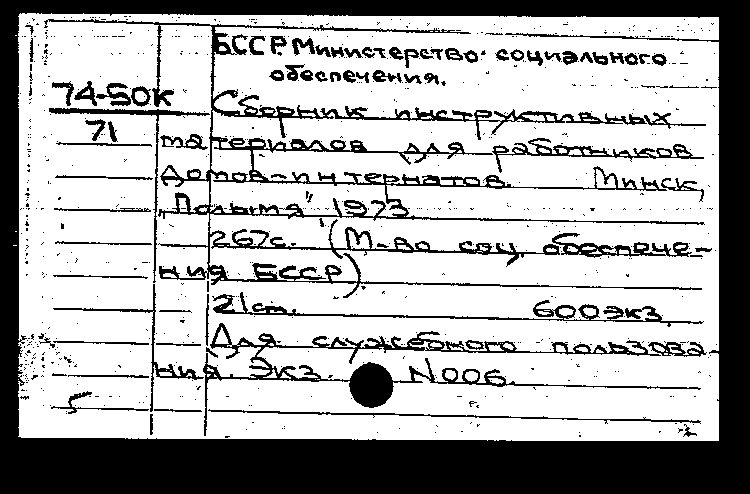 БССР Министерство социального
обеспечения.
74-50к
71
Сборник инструктивных
материалов для работников
домов-интернатов. Минск,
„Полымя", 1973.
267с. (М-во соц. обеспече-
ния БССР)
21см. 600экз.
Для служебного пользова-
ния. Экз. N006.
5